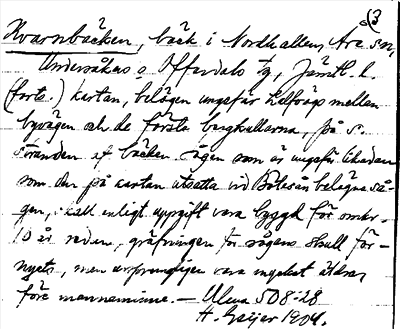 3
Kvarnbäcken, bäck i Nordhallen, Åre sn,
Undersåkers o Offerdals tg, Jämtl. l.
(forts.) kartan, belägen ungefär halfvägs mellan
byvägen och de första berghallarna, på s.
stranden af bäcken. Sågen som är ungefär likadan
som den på kartan utsatta vid belägna så-
gen, skall enligt uppgift vara byggd för omkr.
10 år sedan, gräfningen för sågens skull för-
nyats, men ursprungligen vara mycket äldre,
före mannaminne. — Ulma 508:28
H. Geijer 1904.